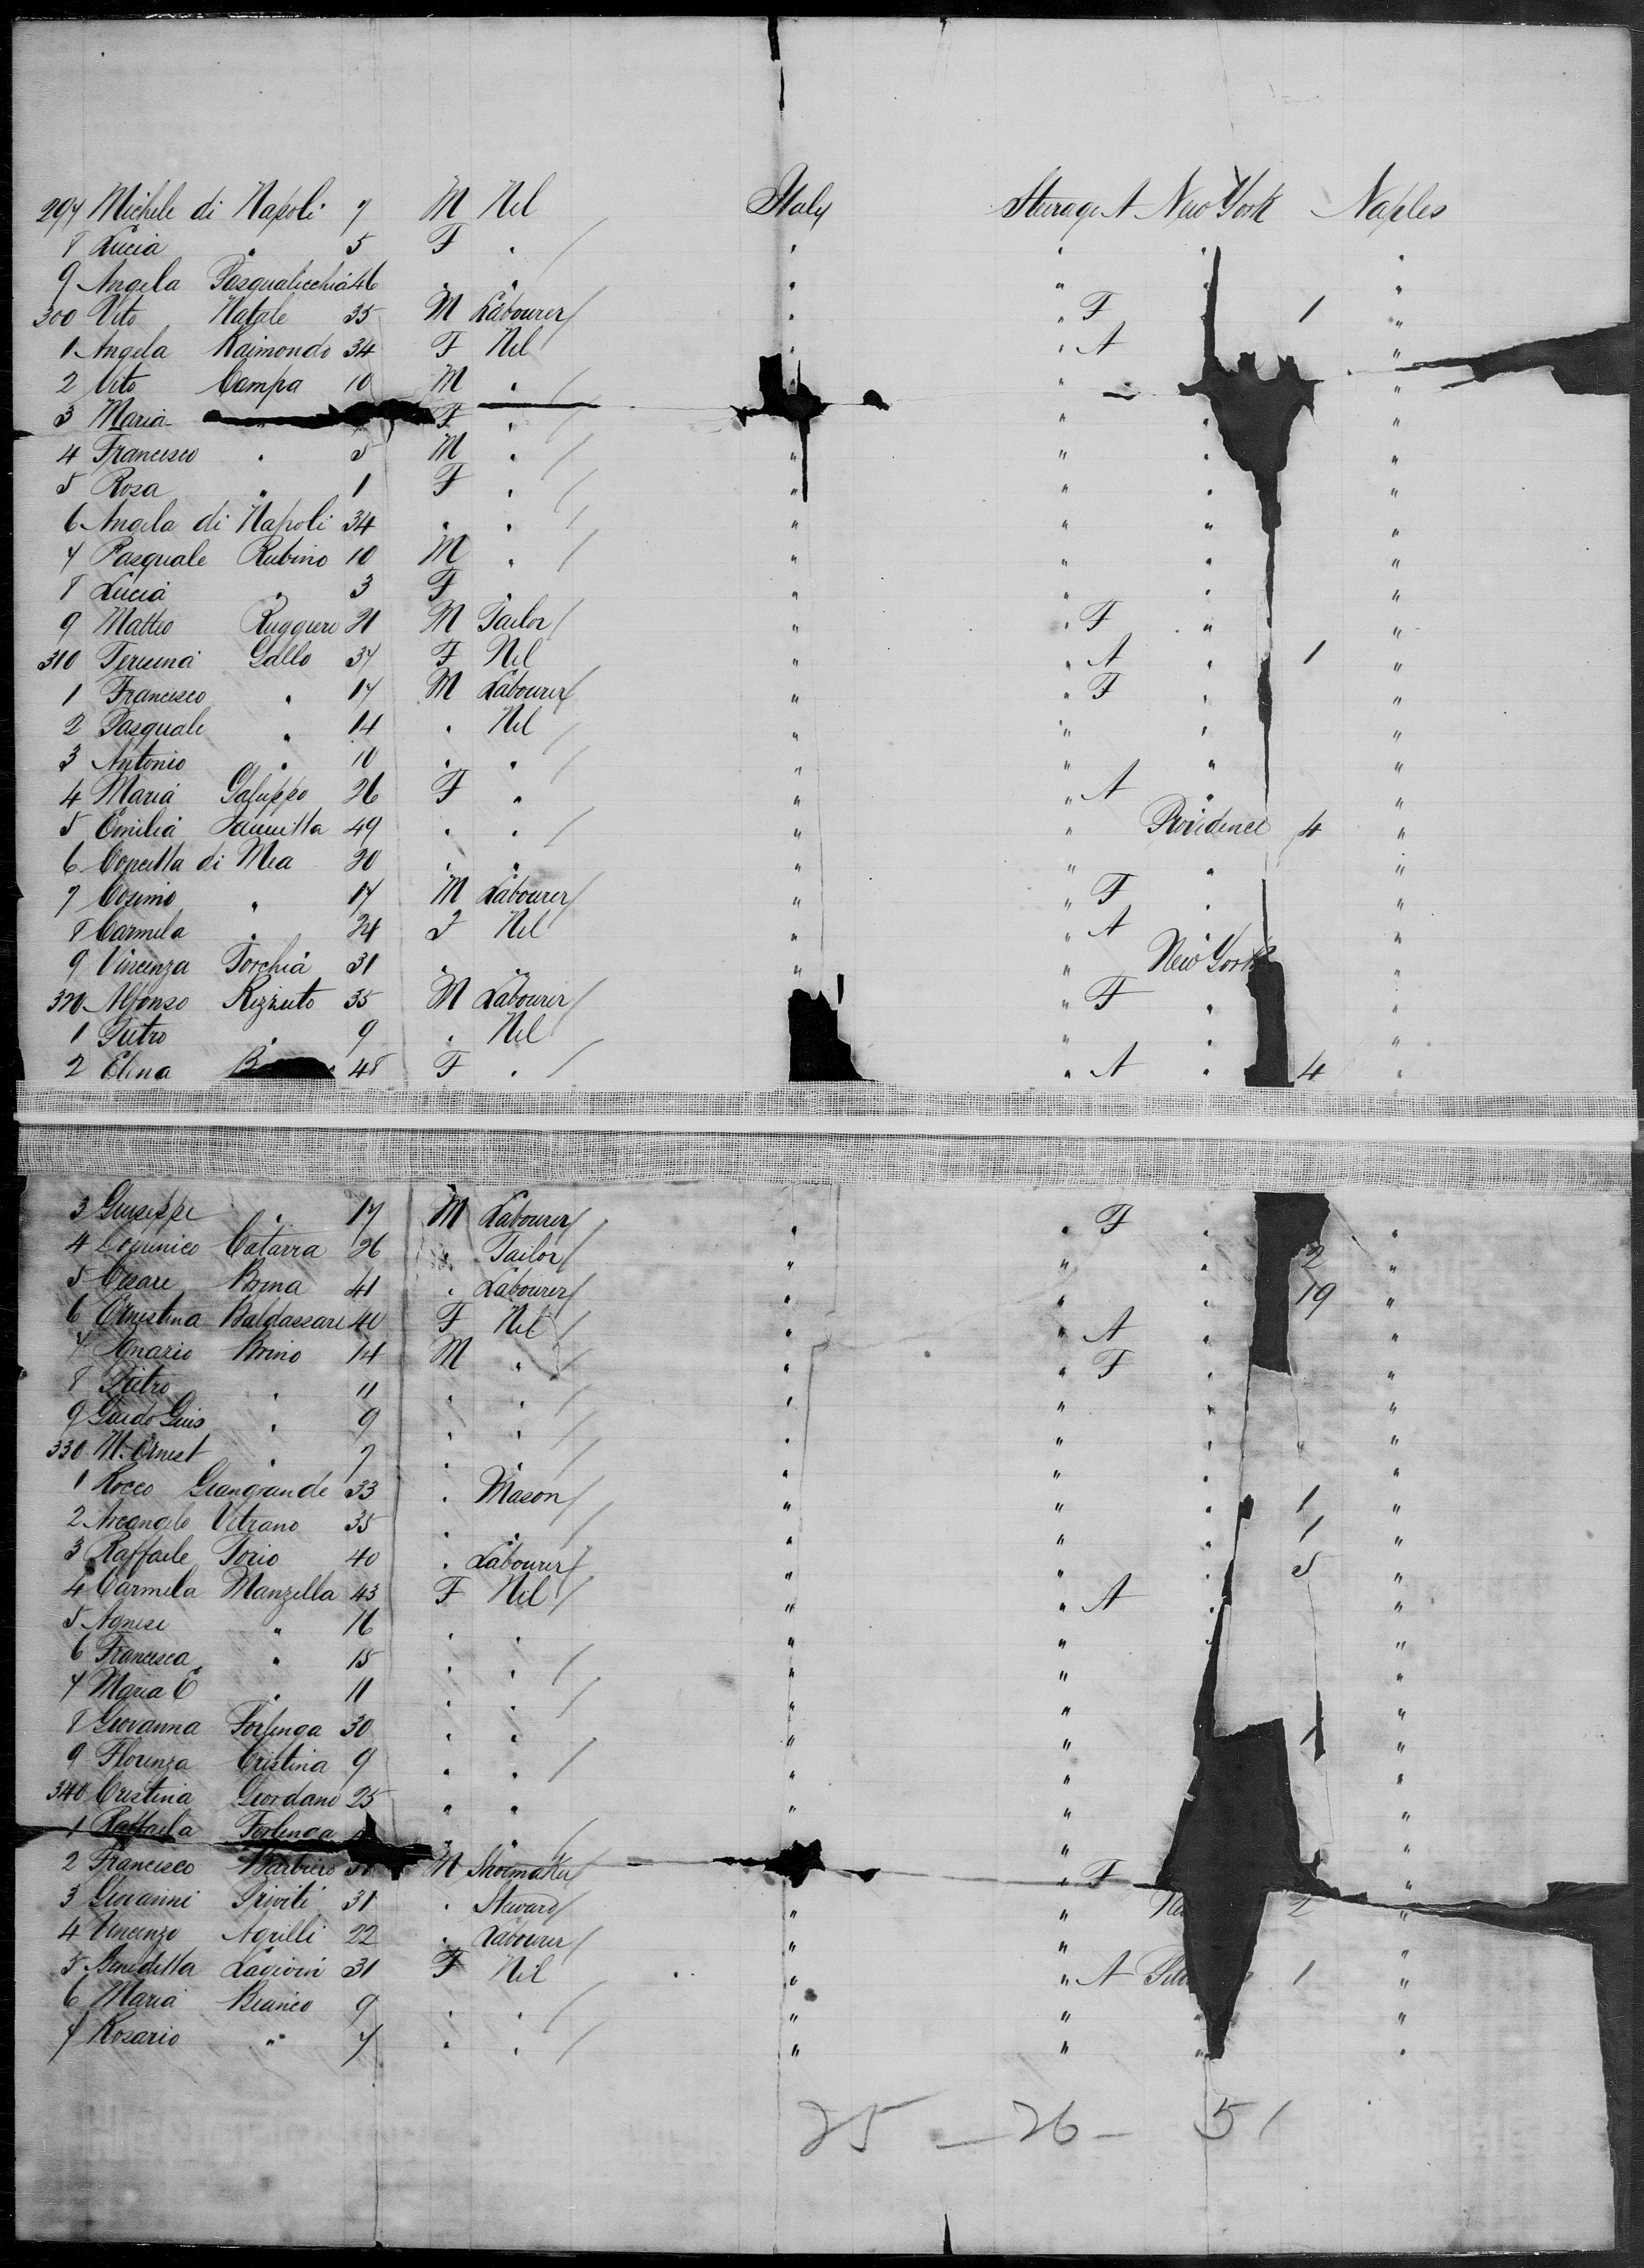 297 Michele di Napoli 7 M Nil Italy Steerage A New York Naples
8 Lucia " 5 F " / " " " "
9 Angela Pasqualicchia 46 " " " " "
300 Vito Natale 35 M Labourer / " " F 1 "
1 Angela Raimondo 34 F Nil " " A "
2 Vito Campa 10 M " / " "
3 Maria " F " / " " "
4 Francesco " 5 M " / " " " "
5 Rosa " 1 F " / " " " "
6 Angela di Napoli 34 " " / " " " "
7 Pasquale Rubino 10 M " / " " " "
8 Lucia " 3 F " " " " "
9 Matteo Ruggiere 21 M Tailor / " " F " "
310 Gallo 37 F Nil " " A " 1 "
1 Francesco " 17 M Labourer / " " F " "
2 Pasquale " 14 " Nil / " " " "
3 Antonio " 10 " " / " " " "
4 Maria Galuppo 26 F " " " A " "
5 Emilia 49 " " / " " Providence 4 "
6 Concetta di Mea 20 " " " " " "
7 Cosimo " 17 M Labourer / " " F " "
8 Carmela " 24 F Nil " " A " "
9 Vincenza Torchia 31 " " " " New York "
320 Alfonso Rizzuto 35 M Labourer / " F " "
1 Pietro " 9 " Nil " " "
2 Elena B 48 F " / " A " 4 "
3 Giuseppe " 17 M Labourer / " " F " "
4 Domenico Catarra 26 " Tailor / " " " 2 "
5 Cesare Brina 41 " Labourer / " " " 19 "
6 Ernestina Baldassare 40 F Nil / " " A " "
7 Ignazio Brino 14 M " / " " F " "
8 Pietro " 11 " " / " " " "
9 Guido Guis " 9 " " / " " " "
330 Ernest " 7 " " / " " " "
1 Rocco Giangrande 33 " Mason / " " " 1 "
2 Arcangelo Vetrano 35 " " / " " " 1 "
3 Raffaele Torio 40 " Labourer / " " " 5 "
4 Carmela Manzella 43 F Nil / " " A " "
5 Agnese " 16 " " " " " "
6 Francesca " 15 " " / " " "
7 Maria E " 11 " " / " " "
8 Giovanna Forlenga 30 " " " " 1 "
9 Florenza Cristina 9 " " / " " "
340 Cristina Giordano 25 " " " " "
1 Raffaela Forlenga " " / " "
2 Francesco Barbiero M Shoemaker / " F "
3 Giovanni Triviti 31 " Steward / " " 2 "
4 Vincenzo Agrilli 22 " Labourer / " " "
5 Benedetta 31 F Nil " " A 1 "
6 Maria Bianco 9 " " / " " " "
7 Rosario " 7 " " / " " " "
25 - 26 - 51